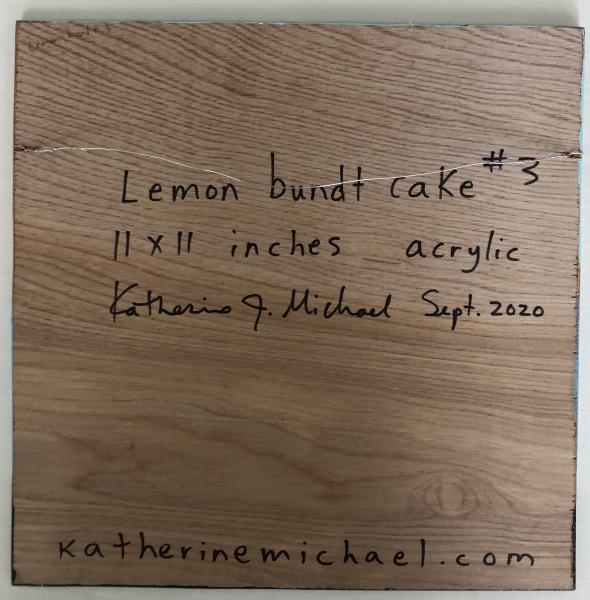 Lemon bundt #3
Lemon bundt cake #3
11 x 11 inches acrylic
Katherine J. Michael Sept. 2020
katherinemichael.com